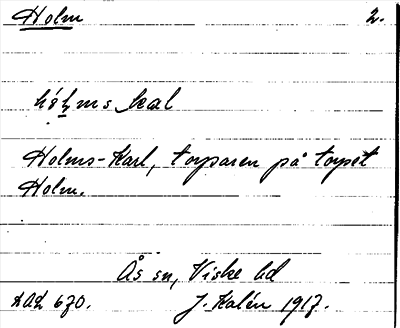 Holm 2.
hó̱ḻms kal
Holms-Karl, torparen på torpet
Holm.
Ås sn, Viske hd
J. Kalén 1917.